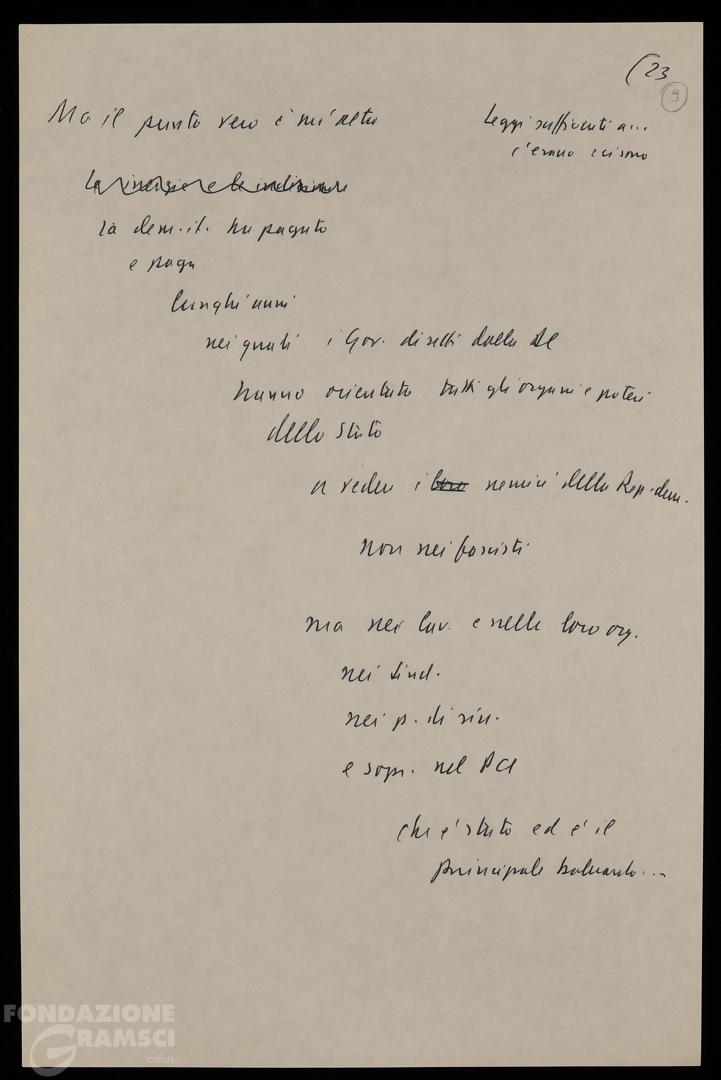 (23
9
Ma il punto vero è un'altro
Leggi sufficienti a...
c'erano e ci sono
La dem. it. ha pagato
e paga
lunghi anni
nei quali i Gov. diretti dalla DC
hanno orientato tutti gli organi e poteri
dello Stato
a vedere i loro nemici della Rep. dem.
non nei fascisti
ma nei lav. e nelle loro org.
nei sind.
nei p. di sin.
e sopr. nel PCI
che è stato ed è il
principale baluardo...
FONDAZIONE
GRAMSCI
onlus